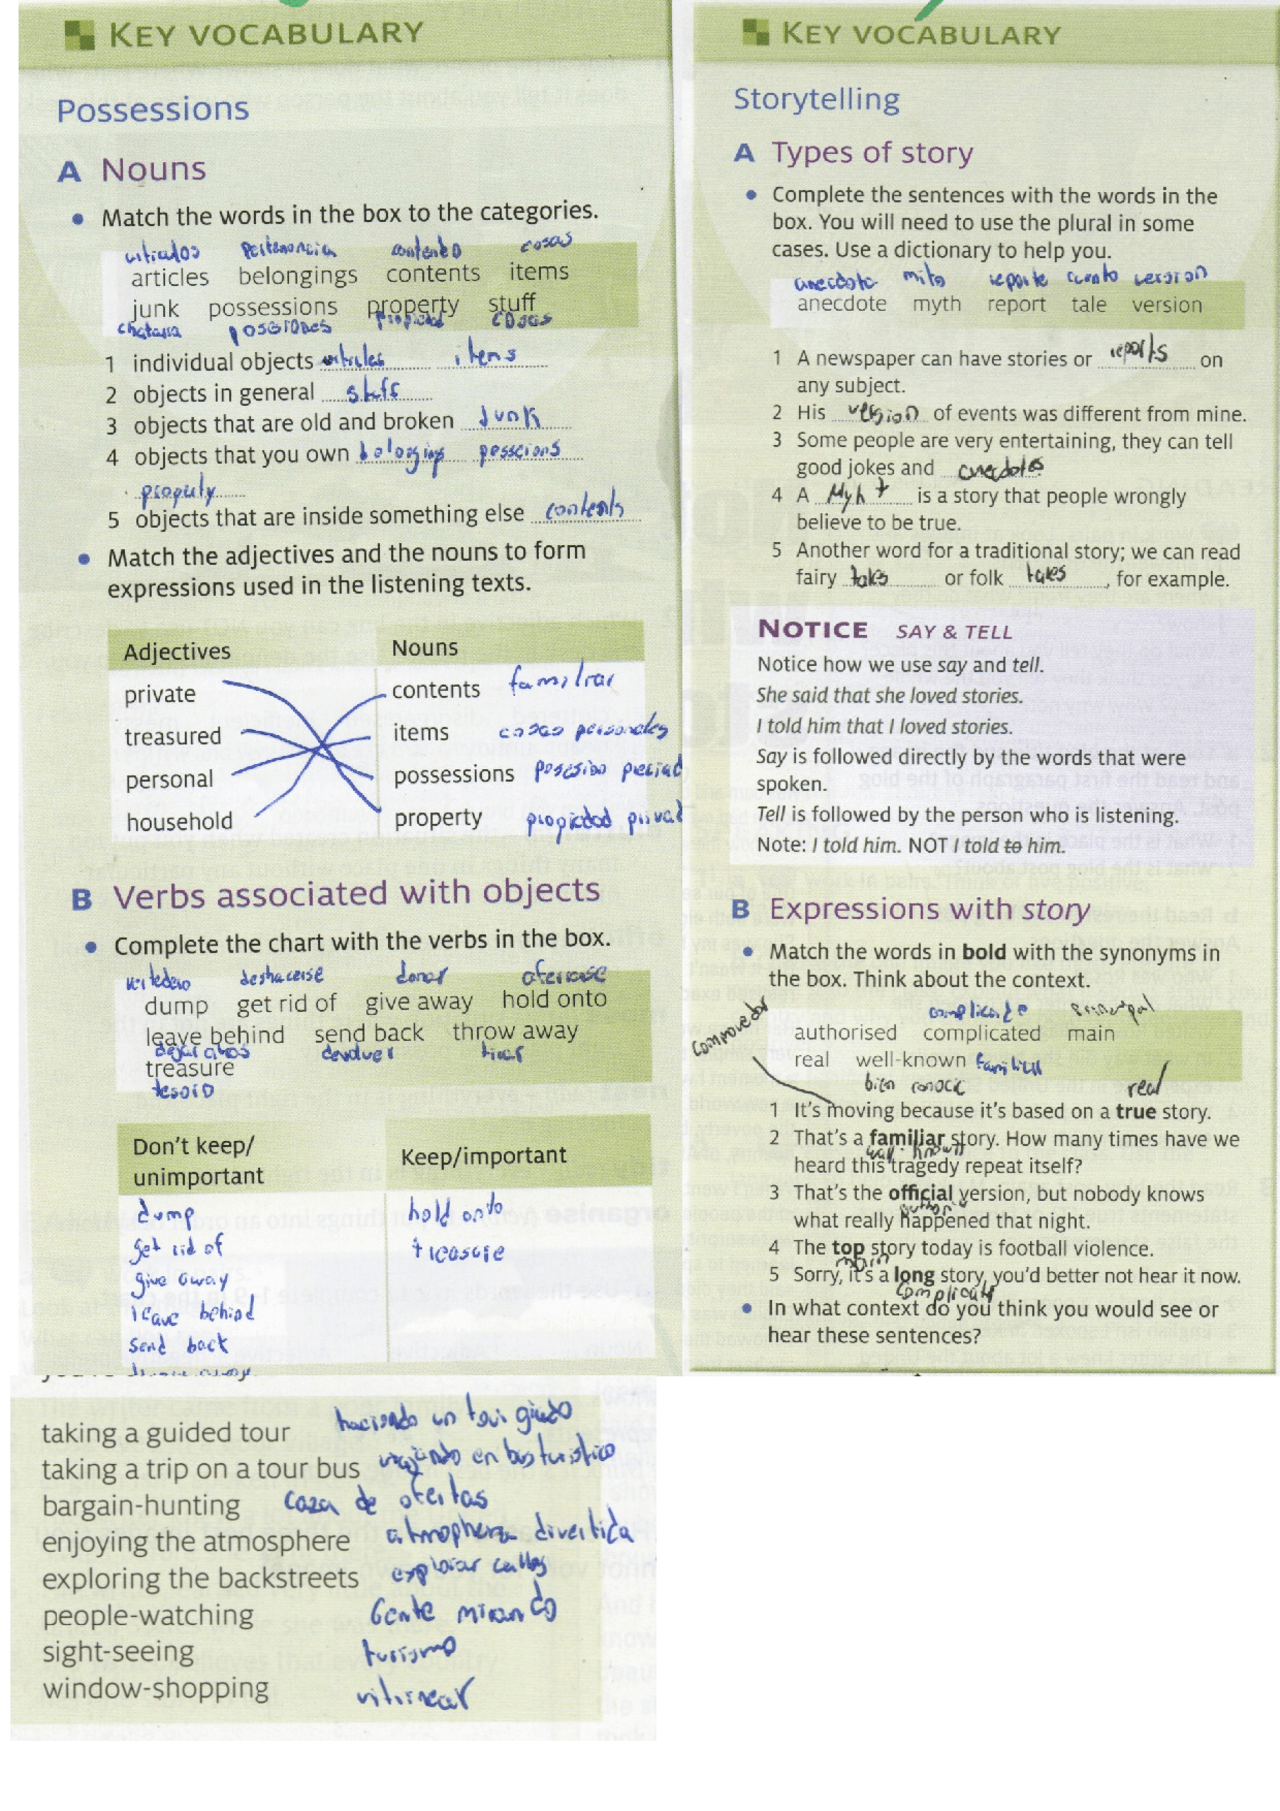 KEY VOCABULARY
Possessions
A Nouns
• Match the words in the box to the categories.
contenido cosas
articles belongings contents items
junk possessions property stuff
chatarra posesiones propiedad cosas
1 individual objects articles items
2 objects in general stuff
3 objects that are old and broken Junk
4 objects that you own
property
5 objects that are inside something else contents
• Match the adjectives and the nouns to form
expressions used in the listening texts.
Adjectives Nouns
private contents familiar
treasured items cosas personales
personal possessions
household property propiedad privad
B Verbs associated with objects
• Complete the chart with the verbs in the box.
vertedero deshacerse donar
dump get rid of give away hold onto
leave behind send back throw away
dejar atras devolver tirar
treasure
tesoro
Don't keep/
unimportant
Keep/important
dump hold onto
get rid of treasure
give away
leave behind
send back
KEY VOCABULARY
Storytelling
A Types of story
• Complete the sentences with the words in the
box. You will need to use the plural in some
cases. Use a dictionary to help you.
anecdota mito reporte cuento version
anecdote myth report tale version
1 A newspaper can have stories or reports on
any subject.
2 His version of events was different from mine.
3 Some people are very entertaining, they can tell
good jokes and anecdotes
4 A Myht is a story that people wrongly
believe to be true.
5 Another word for a traditional story; we can read
fairy tales or folk tales, for example.
NOTICE SAY & TELL
Notice how we use say and tell.
She said that she loved stories.
I told him that I loved stories.
Say is followed directly by the words that were
spoken.
Tell is followed by the person who is listening.
Note: I told him. NOT I told to him.
B Expressions with story
• Match the words in bold with the synonyms in
the box. Think about the context.
conmovedor
principal
authorised complicated main
real well-known familiar
bien real
1 It's moving because it's based on a true story.
2 That's a familiar story. How many times have we
heard this tragedy repeat itself?
3 That's the official version, but nobody knows
what really happened that night.
4 The top story today is football violence.
main
5 Sorry, it's a long story, you'd better not hear it now.
• In what context do you think you would see or
hear these sentences?
taking a guided tour haciendo un tour
taking a trip on a tour bus viajando en bus turistico
bargain-hunting caza de ofertas
enjoying the atmosphere atmosphera divertida
exploring the backstreets explorar calles
people-watching Gente mirando
sight-seeing turismo
window-shopping vitrinear